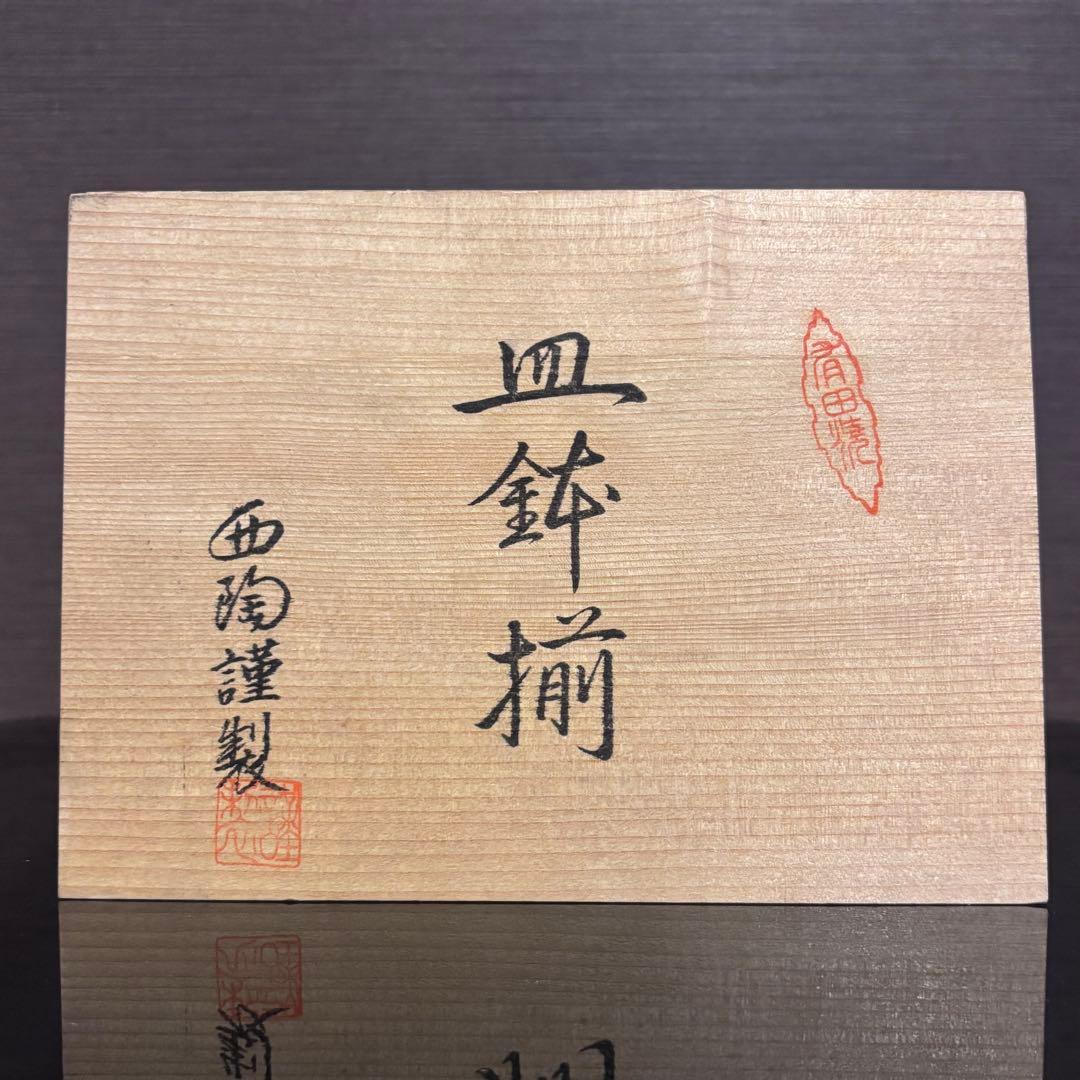 有田焼
皿鉢揃
西陶謹製